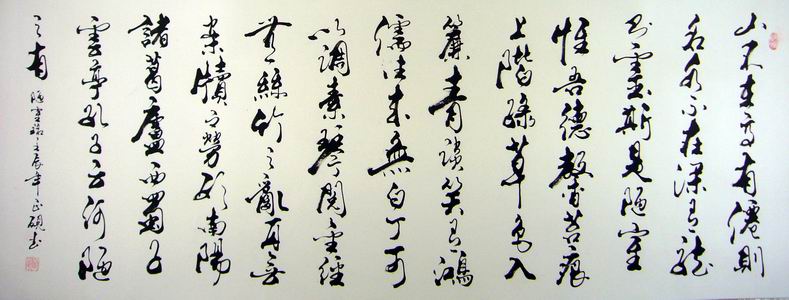 山不在高有僊則
名水不在深有龍
則靈斯是陋室
惟吾德馨苔痕
上階綠草色入
簾青談笑有鴻
儒往來無白丁可
以調素琴閱金經
無絲竹之亂耳無
案牘之勞形南陽
諸葛廬西蜀子
雲亭孔子云何陋
之有 陋室銘壬辰年正硯書